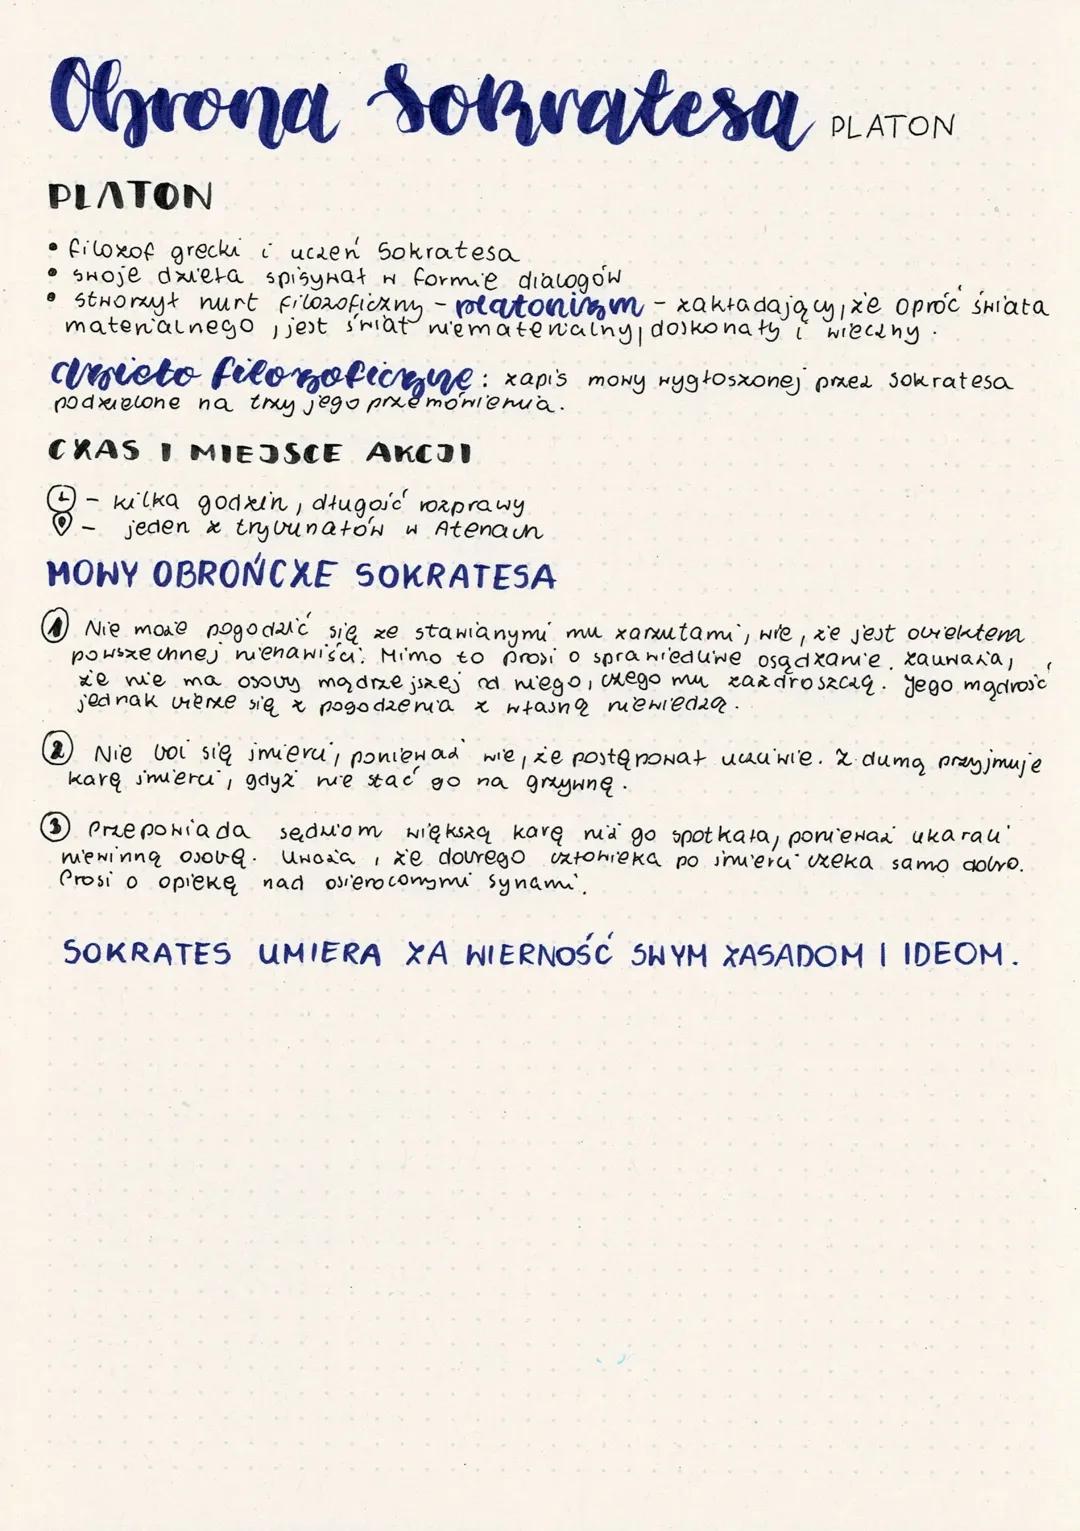 Obrona Sokratesa PLATON
PLATON
• filozof grecki i uczeń Sokratesa
• swoje dzieła spisywał w formie dialogów
• stworzył nurt filozoficzny - platonizm - zakładający, że oproć świata
materialnego, jest świat niematerialny, doskonały i wieczny.
dzieło filozoficzne: zapis mowy wygłoszonej przez Sokratesa
podzielone na trzy jego przemówienia.
CZAS I MIEJSCE AKCJI
- kilka godzin, długość rozprawy
- jeden z trybunałów w Atenach
MOWY OBROŃCZE SOKRATESA
1 Nie może pogodzić się ze stawianymi mu zarzutami, wie, że jest obiektem
powszechnej nienawiści. Mimo to prosi o sprawiedliwe osądzanie. Zauważa,
że nie ma osoby mądrzejszej od niego, czego mu zazdroszczą. Jego mądrość
jednak bierze się z pogodzenia z własną niewiedzą.
2 Nie boi się śmierci, ponieważ wie, że postępował uczciwie. Z dumą przyjmuje
karę śmierci, gdyż nie stać go na grzywnę.
3 Przepowiada sędziom większą karę niż go spotkała, ponieważ ukarali
niewinną osobę. Uważa, że dobrego człowieka po śmierci czeka samo dobro.
Prosi o opiekę nad osieroconymi synami.
SOKRATES UMIERA ZA WIERNOŚĆ SWYM ZASADOM I IDEOM.